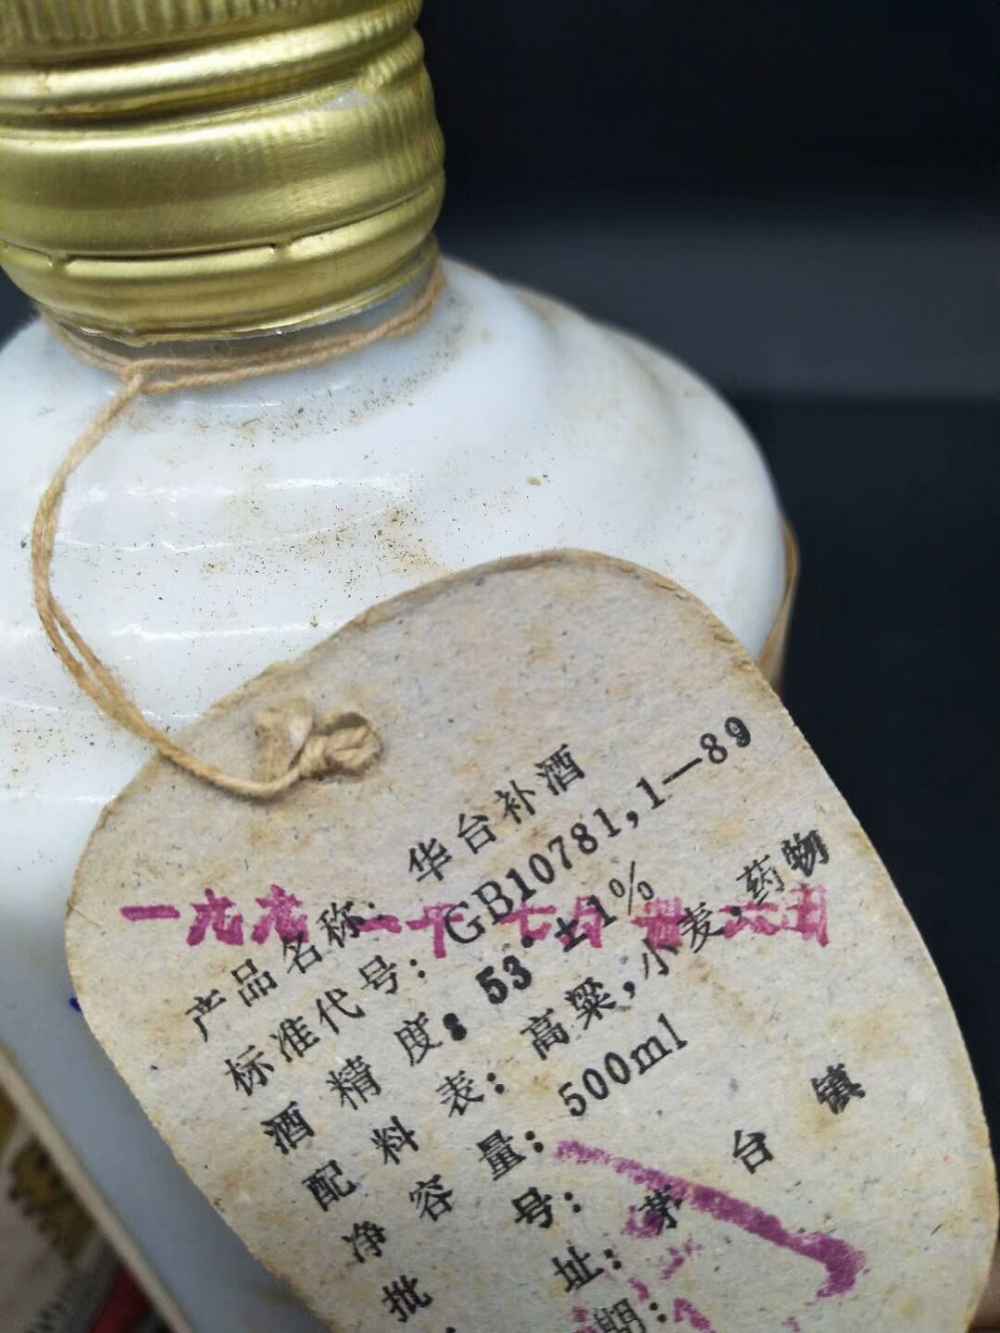 产品名称: 华台补酒
标准代号: GB10781,1—89
酒精度: 53°±1%
配料表: 高粱,小麦,药物
净容量: 500ml
批号:
址: 茅台镇
期:
一九九